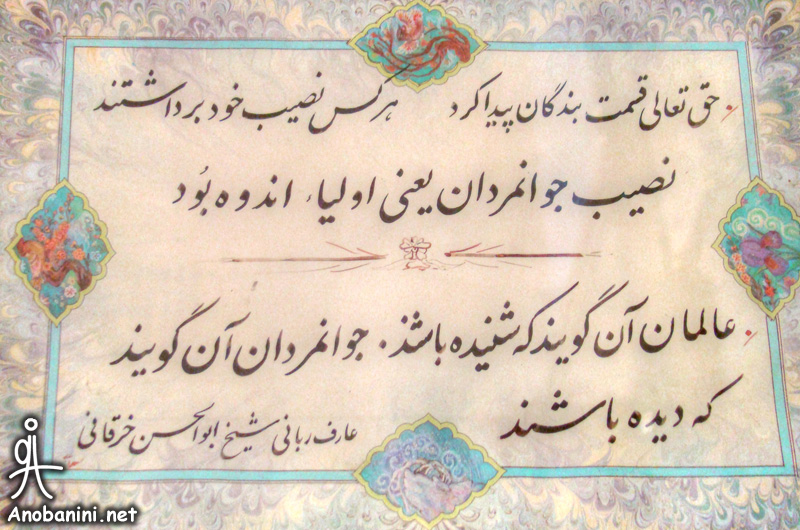 حق تعالی قسمت بندگان پیدا کرد هر کس نصیب خود برداشتند
نصیب جوانمردان یعنی اولیاء اندوه بُود
عالمان آن گویند که شنیده باشند. جوانمردان آن گویند
که دیده باشند
عارف ربانی شیخ ابوالحسن خرقانی
Anobanini.net